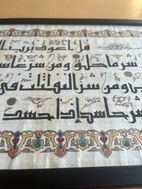 قل اعوذ برب
شر ما خلق و من شر
و من شر النفثت فى
شر حاسد اذا حسد